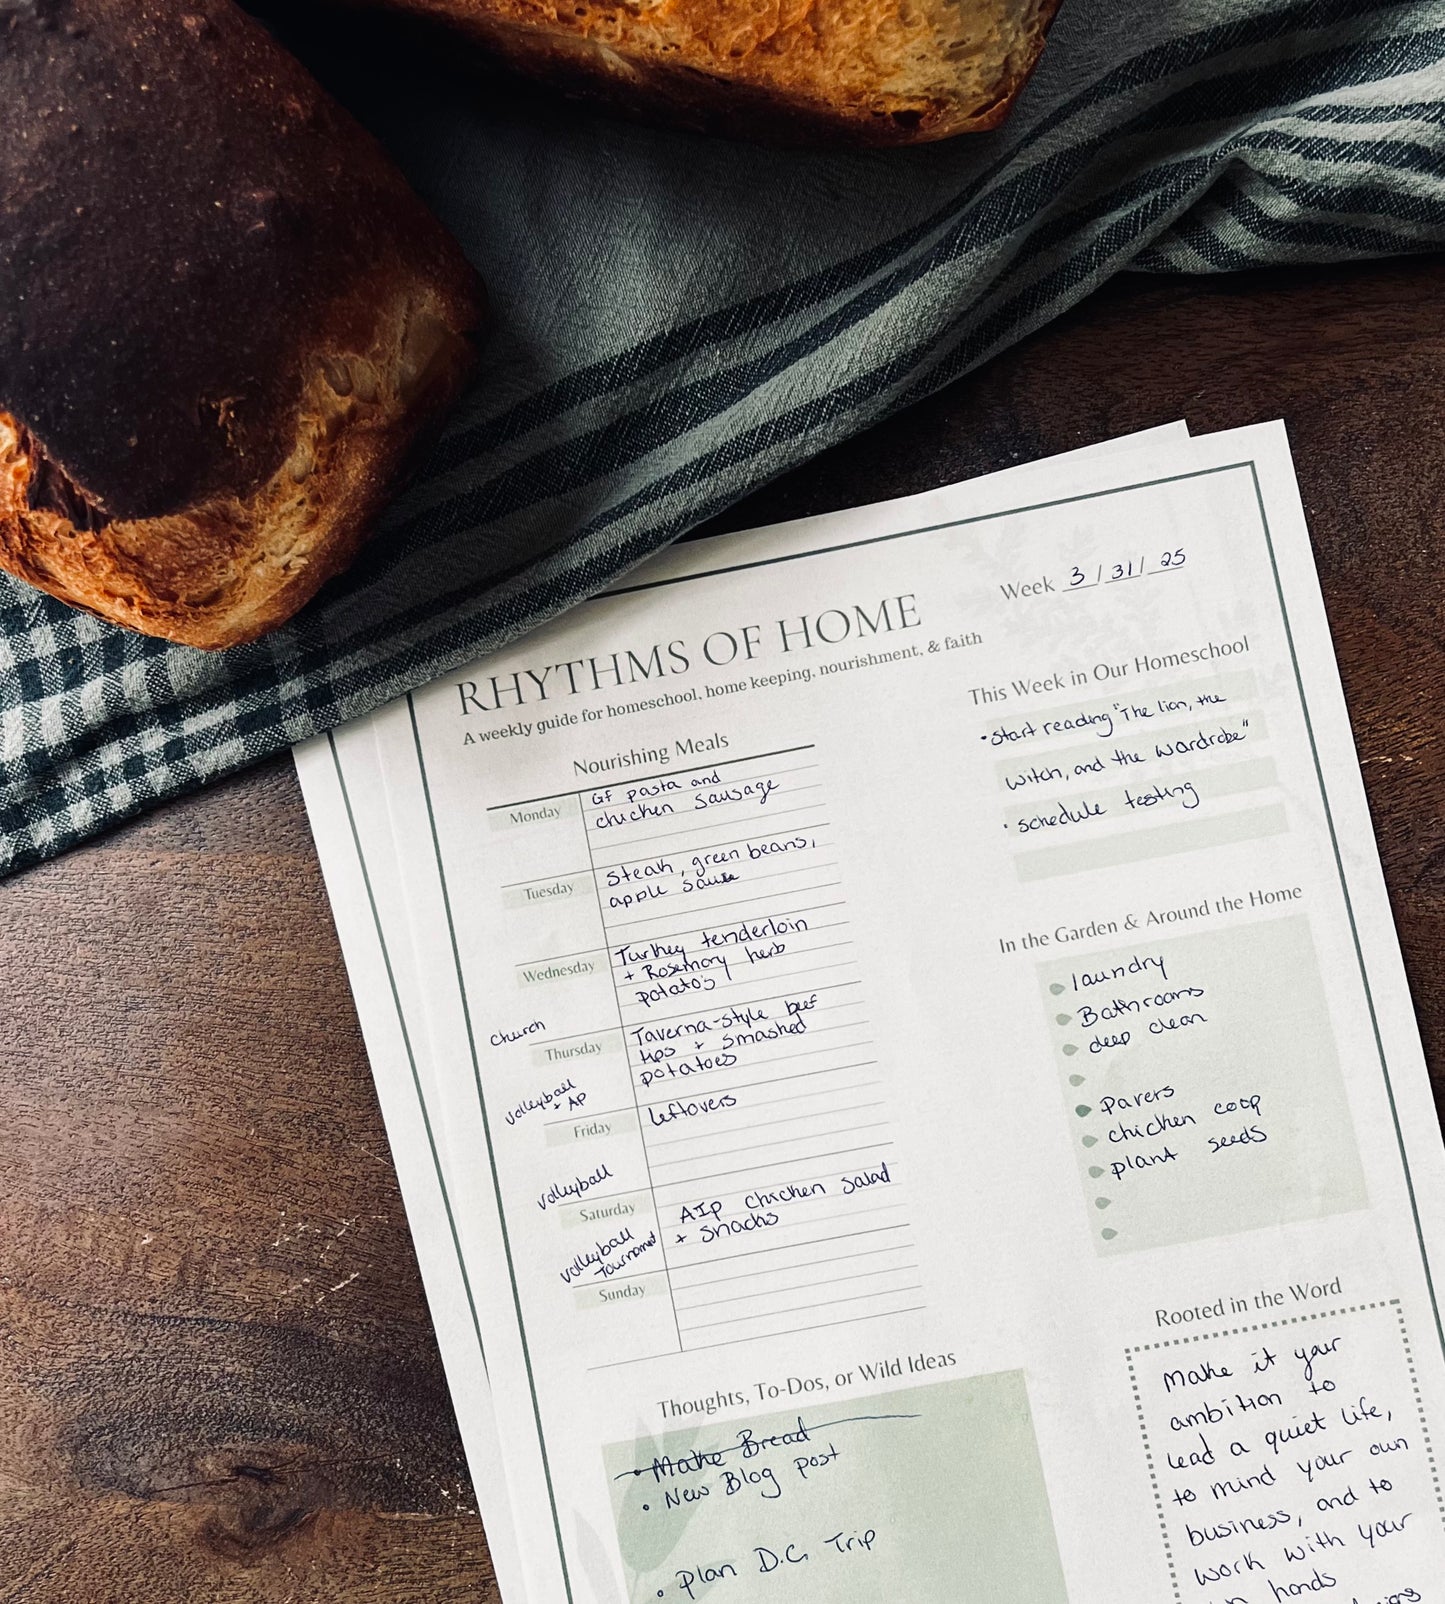 Week 3/31/25
RHYTHMS OF HOME
A weekly guide for homeschool, home keeping, nourishment, & faith
Nourishing Meals
Monday
GF pasta and
chicken sausage
Tuesday
Steak, green beans,
apple sauce
Wednesday
Turkey tenderloin
+ Rosemary herb
potato's
church
Thursday
Taverna-style beef
tips + smashed
potatoes
volleyball
+ AP
Friday
leftovers
volleyball
Saturday
AIP chicken salad
+ snacks
volleyball
Tournament
Sunday
Thoughts, To-Dos, or Wild Ideas
• Make Bread
• New Blog post
• Plan D.C. Trip
This Week in Our Homeschool
• start reading "The lion, the
witch, and the wardrobe"
• schedule testing
In the Garden & Around the Home
laundry
Bathrooms
deep clean
pavers
chicken coop
plant seeds
Rooted in the Word
Make it your
ambition to
lead a quiet life,
to mind your own
business, and to
work with your
hands